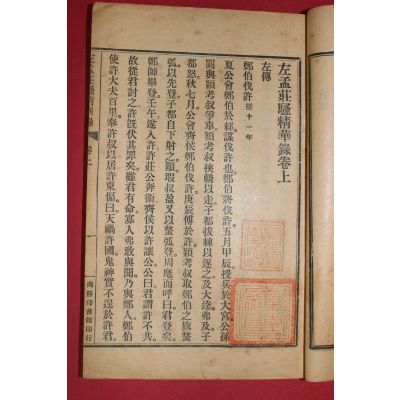 左孟莊騷精華錄卷上
左傳
鄭伯伐許 隱十一年
夏公會鄭伯於郲謀伐許也鄭伯將伐許五月甲辰授兵於大宮公孫
閼與潁考叔爭車潁考叔挾輈以走子都拔棘以逐之及大逵弗及子
都怒秋七月公會齊侯鄭伯伐許庚辰傅於許潁考叔取鄭伯之旗蝥
弧以先登子都自下射之顛瑕叔盈又以蝥弧登周麾而呼曰君登矣
鄭師畢登壬午遂入許許莊公奔衛齊侯以許讓公公曰君謂許不共
故從君討之許既伏其罪矣雖君有命寡人弗敢與聞乃與鄭人鄭伯
使許大夫百里奉許叔以居許東偏曰天禍許國鬼神實不逞於許君
卷上
一
商務印書館印行